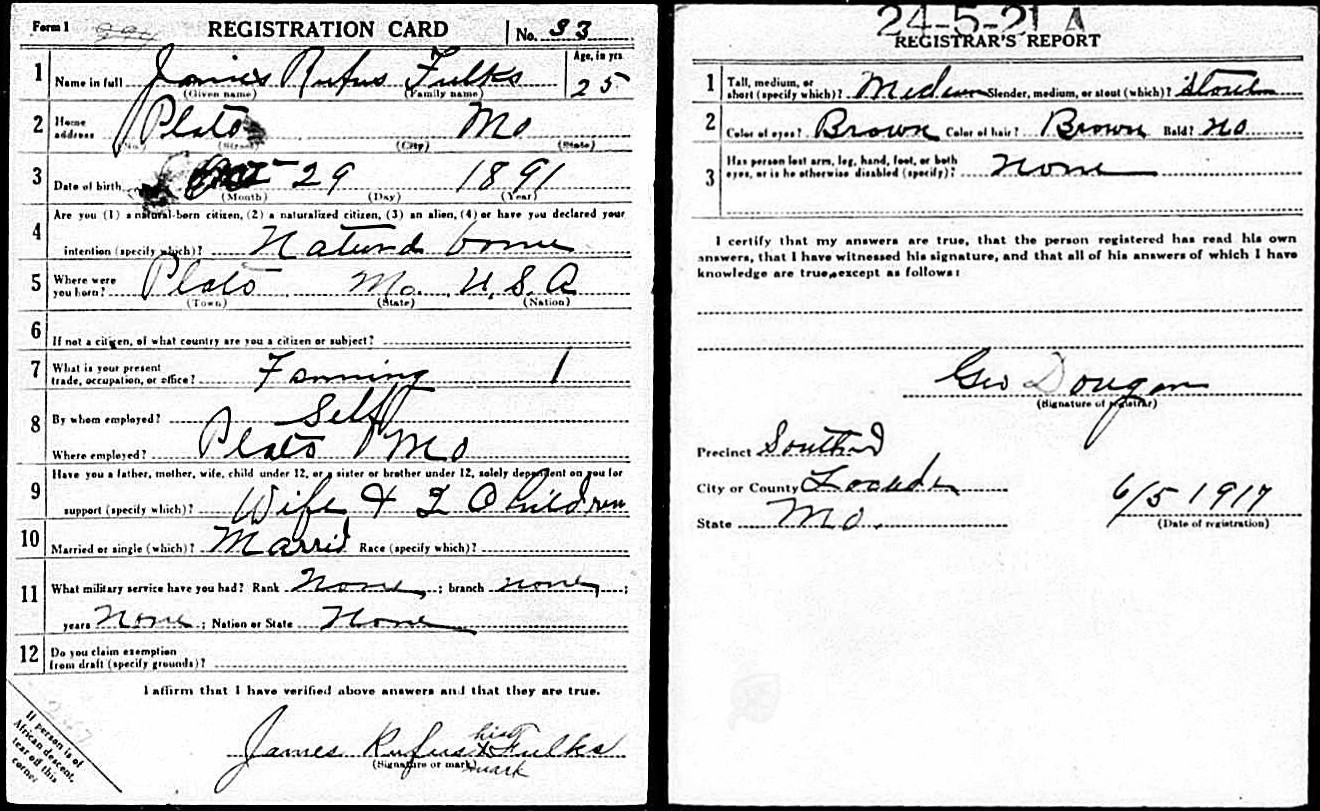 Form 1 REGISTRATION CARD No. 33
1 Name in full James Rufus Fulks Age, in yrs 25
(Given name) (Family name)
2 Home address Plato Mo
(No.) (Street) (City) (State)
3 Date of birth Oct 29 1891
(Month) (Day) (Year)
4 Are you (1) a natural-born citizen, (2) a naturalized citizen, (3) an alien, (4) or have you declared your
intention (specify which)? Natural borne
5 Where were you born? Plato Mo. U.S.A
(Town) (State) (Nation)
6 If not a citizen, of what country are you a citizen or subject?
7 What is your present trade, occupation, or office? Farming 1
8 By whom employed? Self
Where employed? Plato Mo
9 Have you a father, mother, wife, child under 12, or a sister or brother under 12, solely dependent on you for
support (specify which)? Wife & 2 Children
10 Married or single (which)? Married Race (specify which)?
11 What military service have you had? Rank None ; branch none ;
years None ; Nation or State None
12 Do you claim exemption from draft (specify grounds)?
I affirm that I have verified above answers and that they are true.
James Rufus his X mark Fulks
(Signature or mark)
If person is of
African descent,
tear off this
corner
24-5-21 A
REGISTRAR'S REPORT
1 Tall, medium, or short (specify which)? Medium Slender, medium, or stout (which)? Stout
2 Color of eyes? Brown Color of hair? Brown Bald? No
3 Has person lost arm, leg, hand, foot, or both eyes, or is he otherwise disabled (specify)? None
I certify that my answers are true, that the person registered has read his own
answers, that I have witnessed his signature, and that all of his answers of which I have
knowledge are true, except as follows:
Geo Dougan
(Signature of registrar)
Precinct
City or County
State Mo.
6/5 1917
(Date of registration)